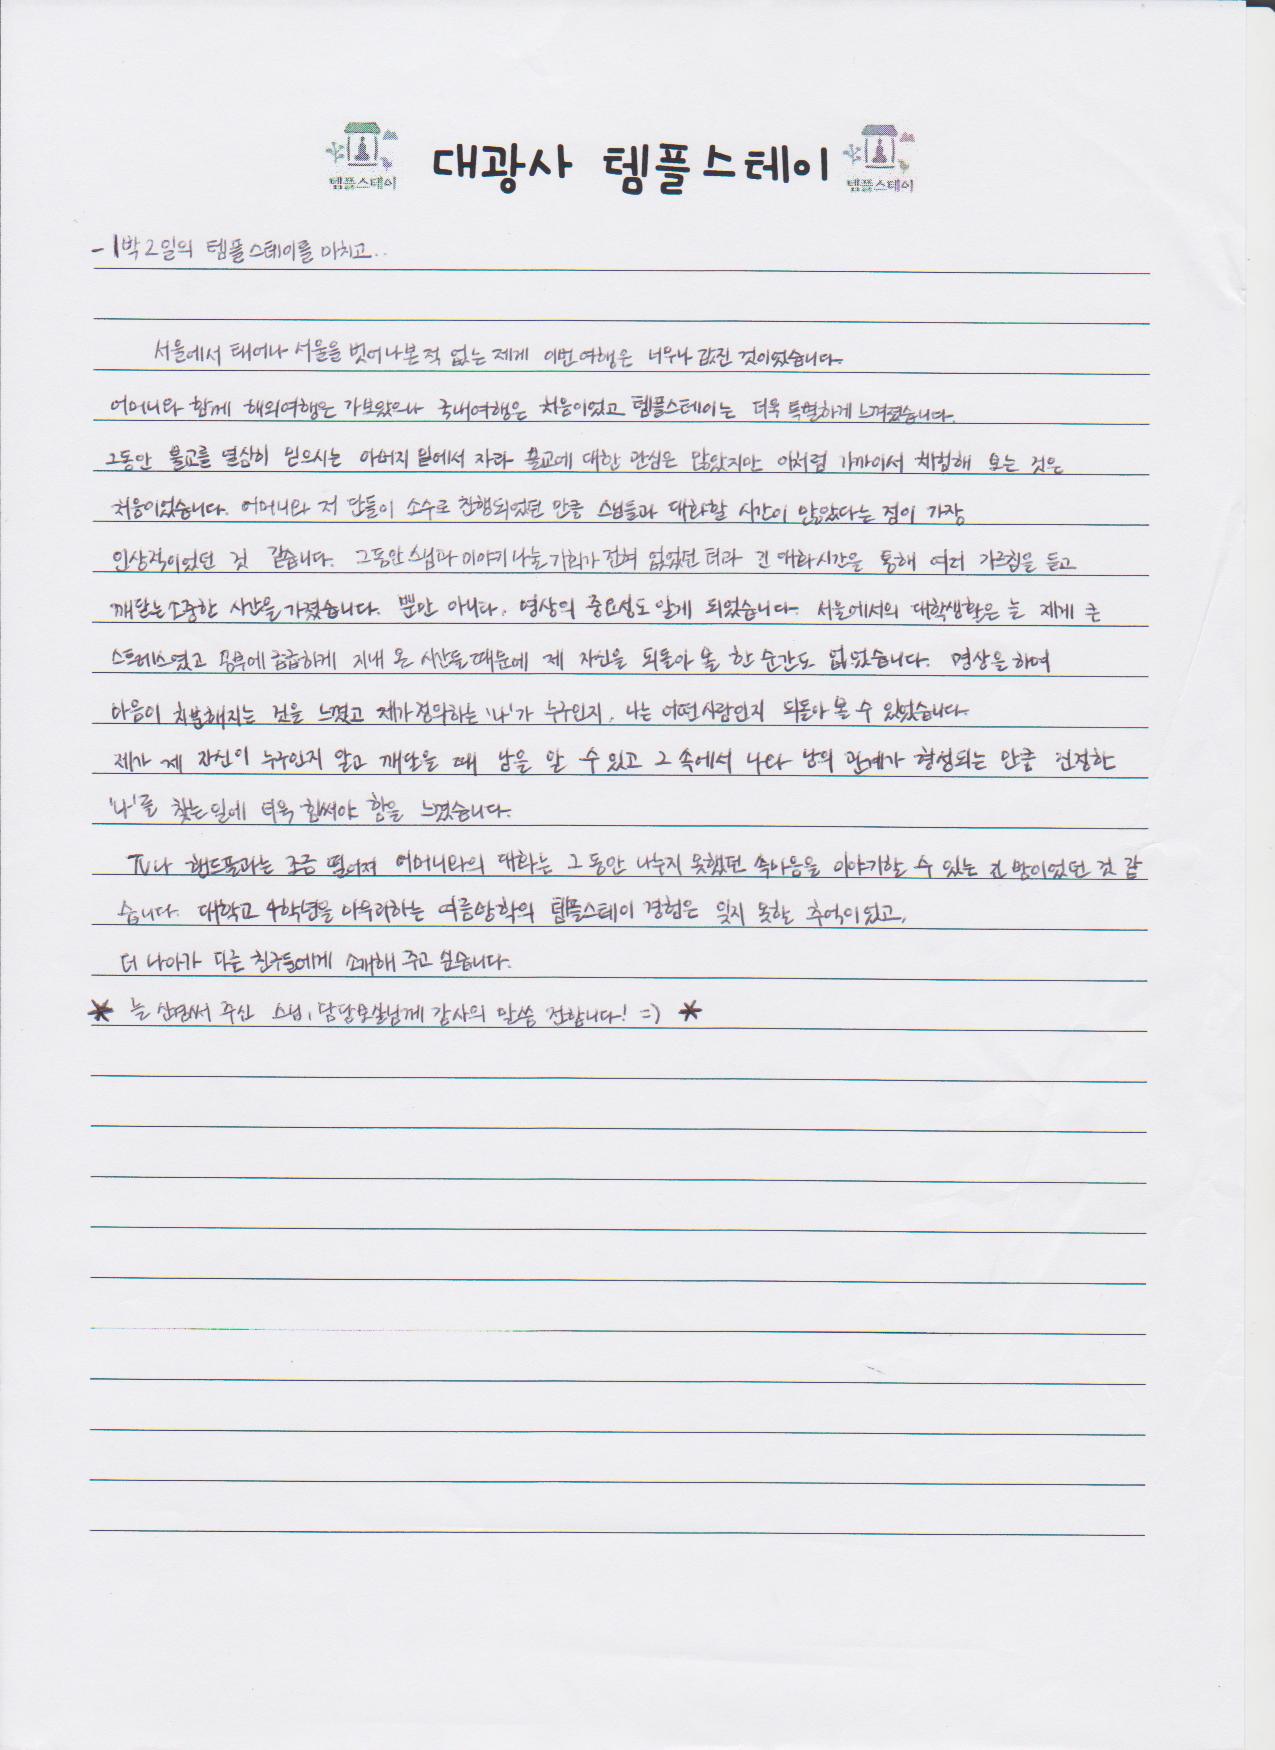 템플스테이 대광사 템플스테이 템플스테이
- 1박 2일의 템플스테이를 마치고..
서울에서 태어나 서울을 벗어나본 적 없는 제게 이번여행은 너무나 값진 것이었습니다.
어머니와 함께 해외여행은 가보았으나 국내여행은 처음이었고 템플스테이는 더욱 특별하게 느껴졌습니다.
그동안 불교를 열심히 믿으시는 아버지 밑에서 자라 불교에 대한 관심은 많았지만 이처럼 가까이서 체험해 보는 것은
처음이었습니다. 어머니와 저 단둘이 소수로 진행되었던 만큼 스님들과 대화할 시간이 많았다는 점이 가장
인상적이었던 것 같습니다. 그동안 스님과 이야기 나눌 기회가 전혀 없었던 터라 긴 대화시간을 통해 여러 가르침을 듣고
깨닫는 소중한 시간을 가졌습니다. 뿐만 아니라, 명상의 중요성도 알게 되었습니다. 서울에서의 대학생활은 늘 제게 큰
스트레스였고 공부에 급급하게 지내 온 시간들 때문에 제 자신을 되돌아 볼 한 순간도 없었습니다. 명상을 하며
마음이 차분해지는 것을 느꼈고 제가 정의하는 '나'가 누구인지, 나는 어떤 사람인지 되돌아 볼 수 있었습니다.
제가 제 자신이 누구인지 알고 깨달을 때 남을 알 수 있고 그 속에서 나와 남의 관계가 형성되는 만큼 진정한
'나'를 찾는 일에 더욱 힘써야 함을 느꼈습니다.
TV나 핸드폰과는 조금 떨어져 어머니와의 대화는 그 동안 나누지 못했던 속마음을 이야기할 수 있는 긴 밤이었던 것 같
습니다. 대학교 4학년을 마무리하는 여름방학의 템플스테이 경험은 잊지 못할 추억이었고,
더 나아가 다른 친구들에게 소개해 주고 싶습니다.
* 늘 신경써 주신 스님, 담당보살님께 감사의 말씀 전합니다! =) *